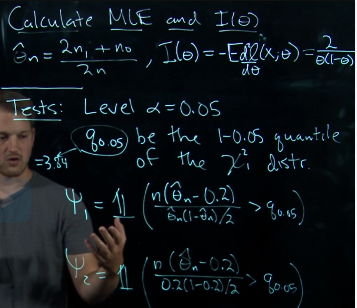 Calculate MLE and I(θ)
θ̂n = 2n₁ + n₀ / 2n , I(θ) = -E dl̇/dθ (X;θ) = 2 / θ(1-θ)
Tests: Level α = 0.05
q0.05 be the 1-0.05 quantile
=3.84 of the χ²₁ distr.
Ψ₁ = 𝟙 ( n(θ̂n - 0.2) / θ̂n(1-θ̂n)/2 > q0.05 )
Ψ₂ = 𝟙 ( n(θ̂n - 0.2) / 0.2(1-0.2)/2 > q0.05 )